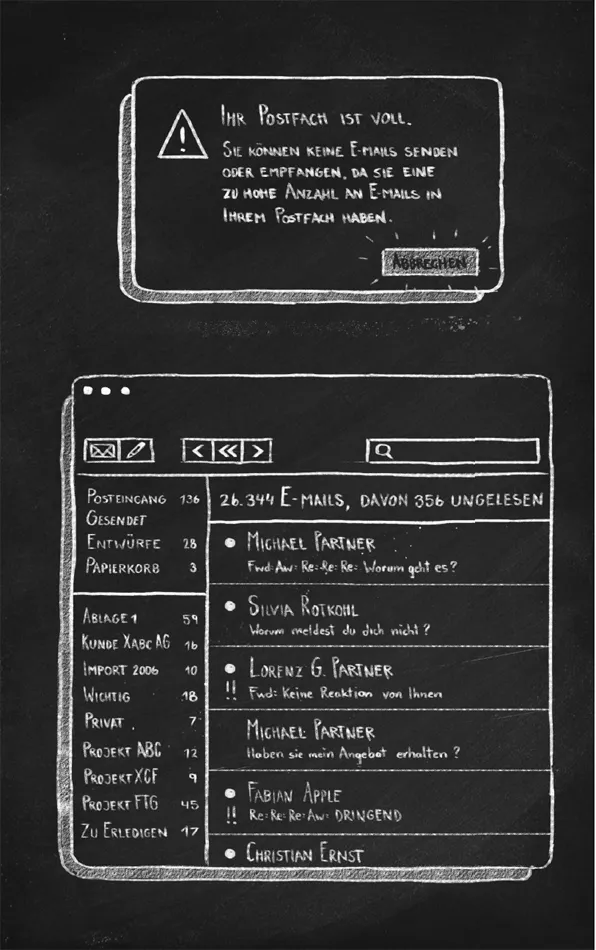 IHR POSTFACH IST VOLL.
SIE KÖNNEN KEINE E-MAILS SENDEN
ODER EMPFANGEN, DA SIE EINE
ZU HOHE ANZAHL AN E-MAILS IN
IHREM POSTFACH HABEN.
ABBRECHEN
POSTEINGANG 136
GESENDET
ENTWÜRFE 28
PAPIERKORB 3
ABLAGE 1 59
KUNDE XABC AG 16
IMPORT 2006 10
WICHTIG 18
PRIVAT 7
PROJEKT ABC 12
PROJEKT XCF 9
PROJEKT FTG 45
ZU ERLEDIGEN 17
26.344 E-MAILS, DAVON 356 UNGELESEN
MICHAEL PARTNER
Fwd: Aw: Re: Re: Re: Worum geht es?
SILVIA ROTKOHL
Worum meldest du dich nicht?
LORENZ G. PARTNER
!! Fwd: Keine Reaktion von Ihnen
MICHAEL PARTNER
Haben sie mein Angebot erhalten?
FABIAN APPLE
!! Re: Re: Re: Aw: DRINGEND
CHRISTIAN ERNST